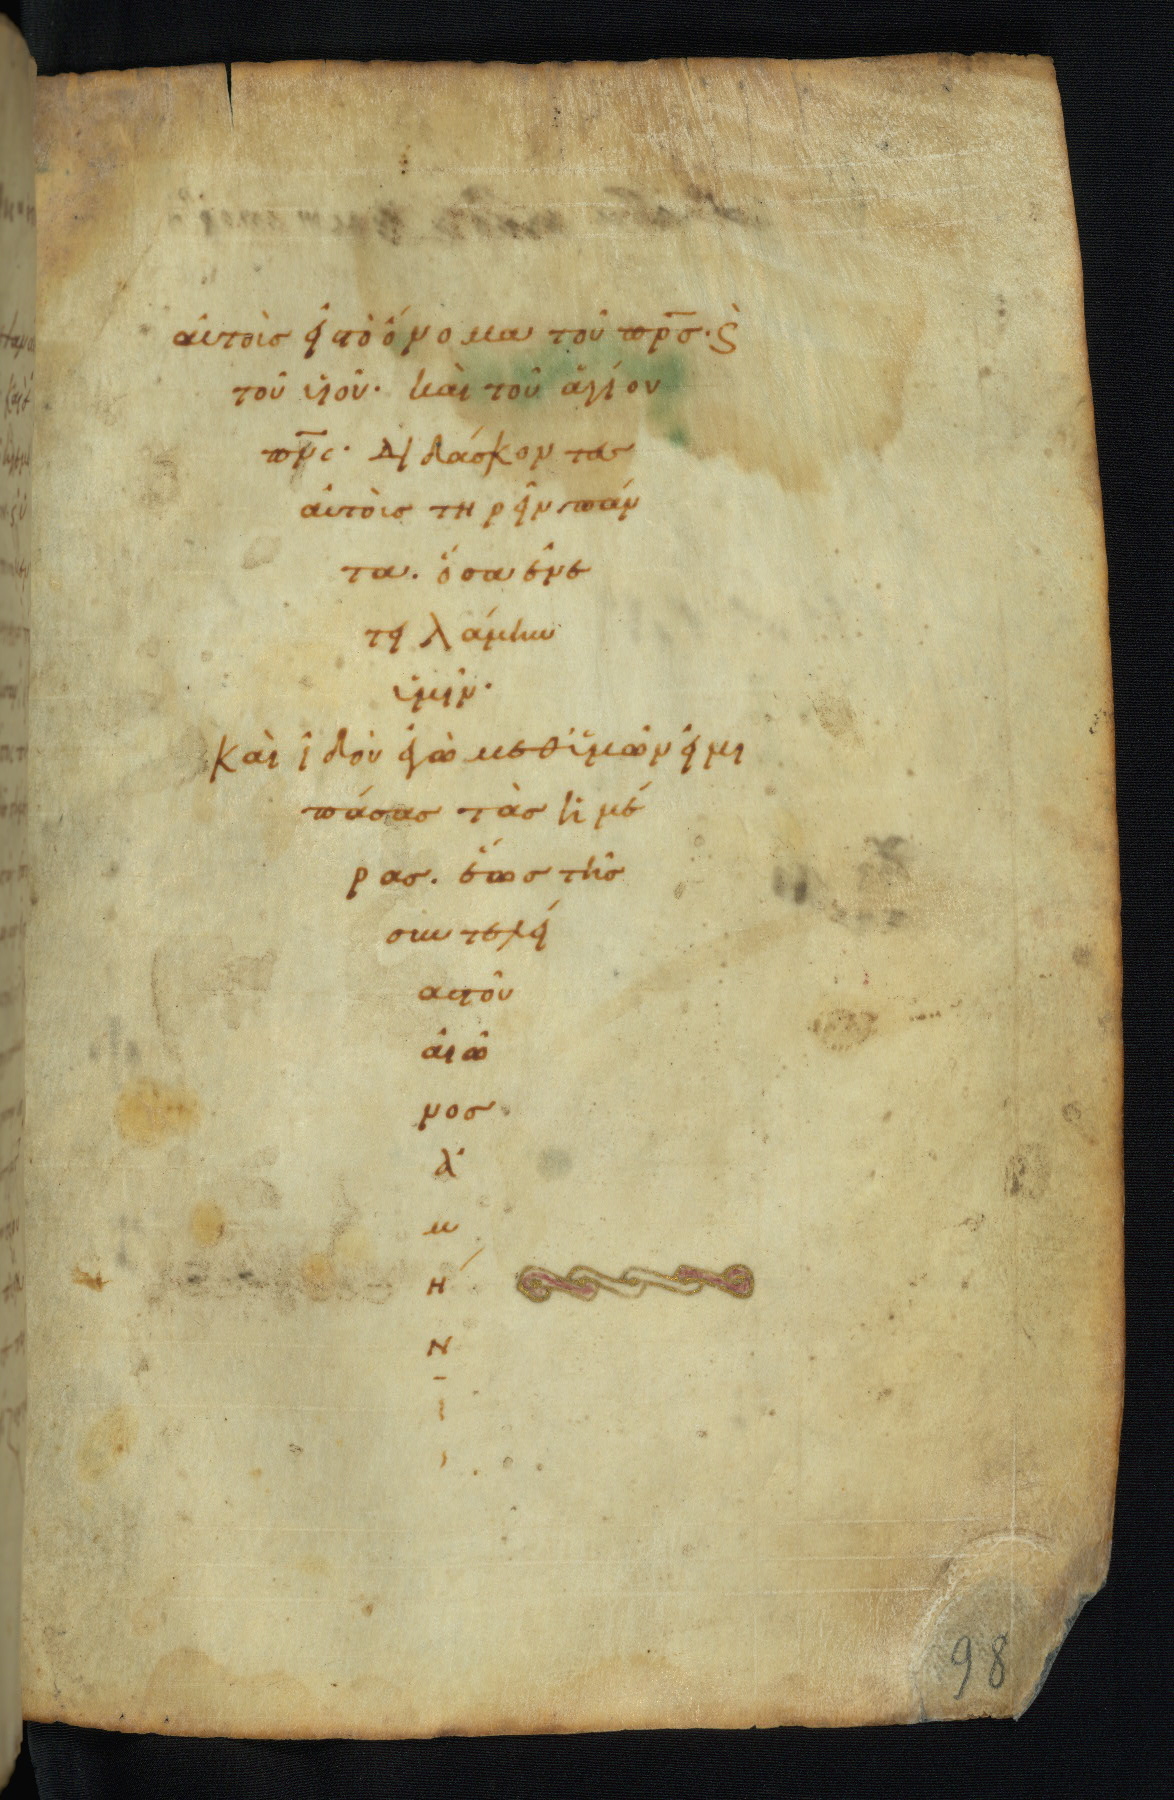 αὐτοὺς εἰς τὸ ὄνομα τοῦ π̅ρ̅σ̅· ϗ
τοῦ υἱοῦ· καὶ τοῦ ἁγίου
π̅ν̅ς̅· Διδάσκοντας
αὐτοὺς τηρεῖν πάν
τα. ὅσα ἐνε
τειλάμην
ὑμῖν·
Καὶ ἰδοὺ ἐγὼ μεθ' ὑμῶν εἰμι
πάσας τὰς ἡμέ
ρας. ἕως τῆς
συντελεί
ας τοῦ
αἰῶ
νος
ἀ
μ
ή
Ν
98